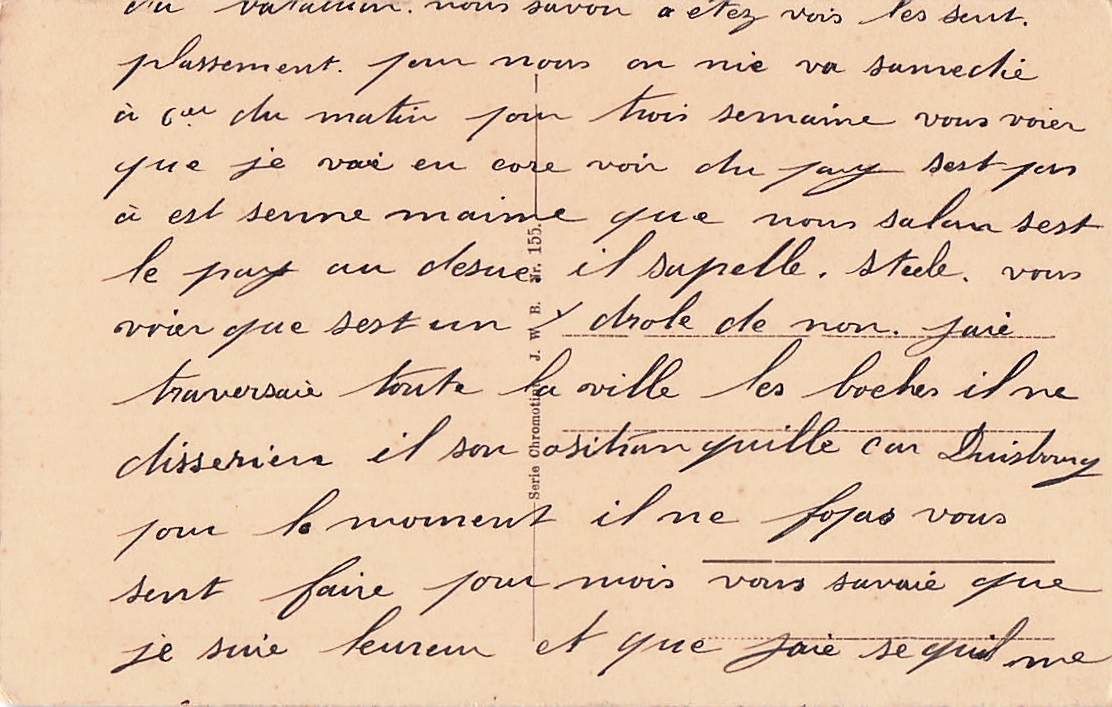 du nous savon a etez vois les sent.
plassement. pour nous on nie va samedie
à 6 eur du matin pour trois semaine vous voier
que je vaie en core voir du pay sest pas
à est senne maime que nous salon sest
le pay au desue il sapelle. steele. vous
voier que sest un drole de non. jaie
traversaie toute la ville les boches il ne
disserien il son ositranquille car Duisbourg
pour le moment il ne fopas vous
sent faire pour mois vous savaie que
je suie heureu et que jaie se quil me
Serie Chromotint J. W. B. Nr. 155.